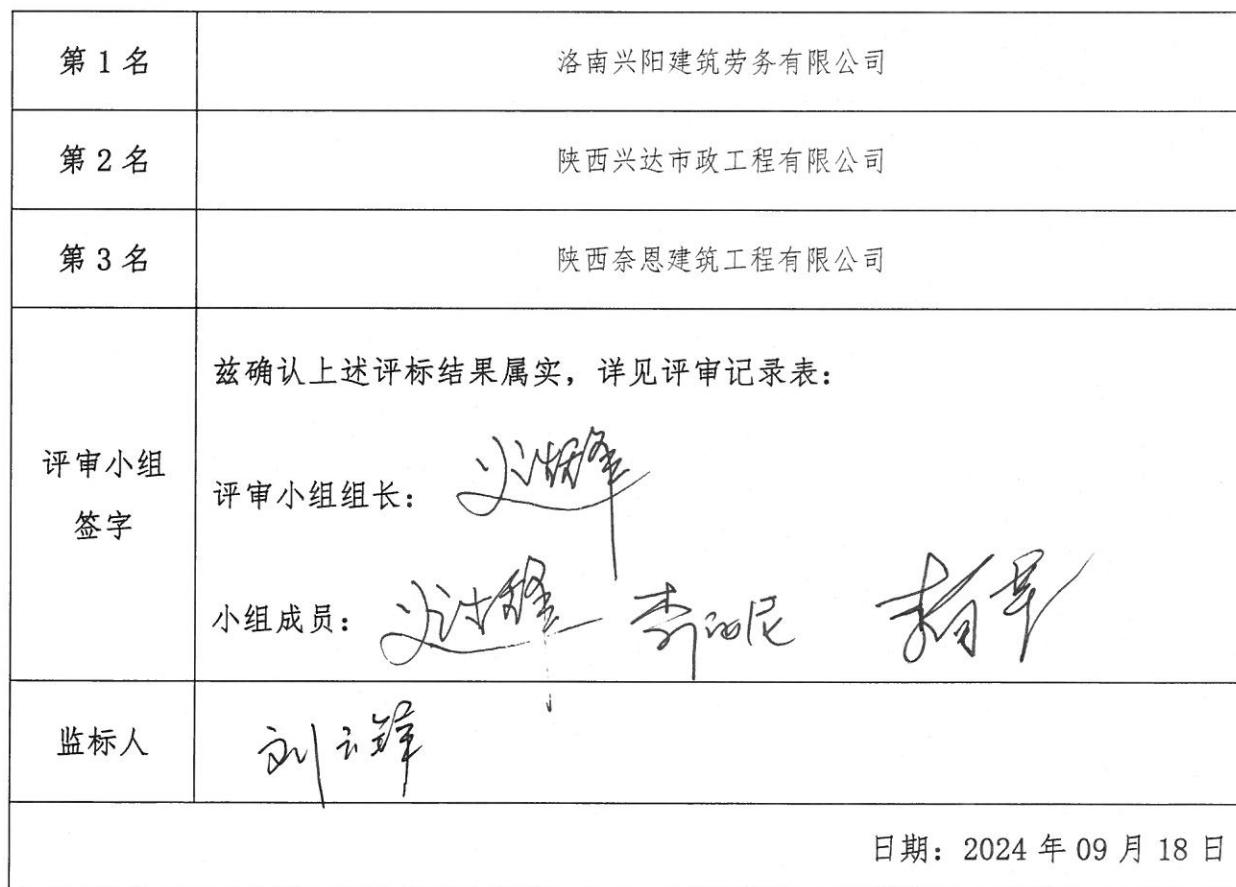 第1名 洛南兴阳建筑劳务有限公司
第2名 陕西兴达市政工程有限公司
第3名 陕西奈恩建筑工程有限公司
兹确认上述评标结果属实，详见评审记录表：
评审小组
签字
评审小组组长：
小组成员：
监标人 刘
日期：2024年09月18日